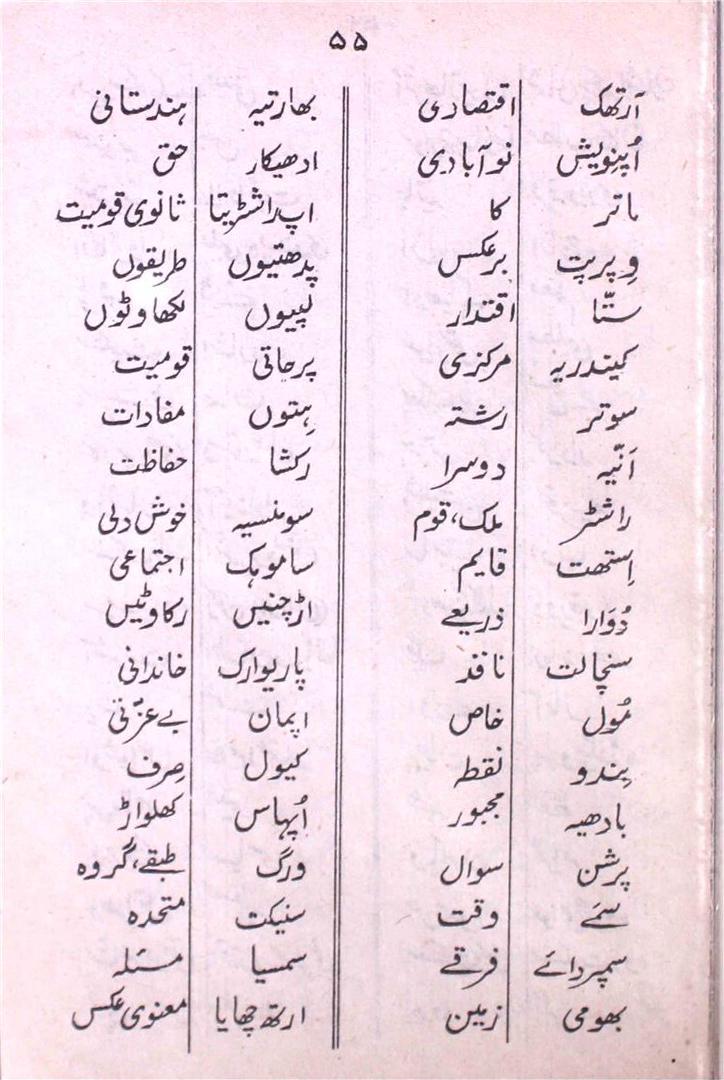 ۵۵
آرتھک اقتصادی بھارتیہ ہندستانی
اُپنویش نوآبادی ادھیکار حق
ماتر کا اپ راشٹریتا ثانوی قومیت
وِپرپت برعکس پدھتیوں طریقوں
ستّا اقتدار لپیوں لکھاوٹوں
کیندریہ مرکزی پرجاتی قومیت
سوتر رشتہ ہِتوں مفادات
اَنّیہ دوسرا رکشا حفاظت
راشٹر ملک، قوم سومنسیہ خوش دلی
اِستھت قایم ساموہک اجتماعی
دُوَارا ذریعے اڑچنیں رکاوٹیں
سنچالت نافذ پاریوارک خاندانی
مُول خاص اپمان بے عزّتی
بِندو نقطہ کیول صِرف
بادھیہ مجبور اُپہاس کھلواڑ
پرشن سوال ورگ طبقے، گروہ
سمَے وقت سنیکت متحدہ
سمپردائے فرقے سمسیا مسئلہ
بھومی زمین ارتھ چھایا معنوی عکس